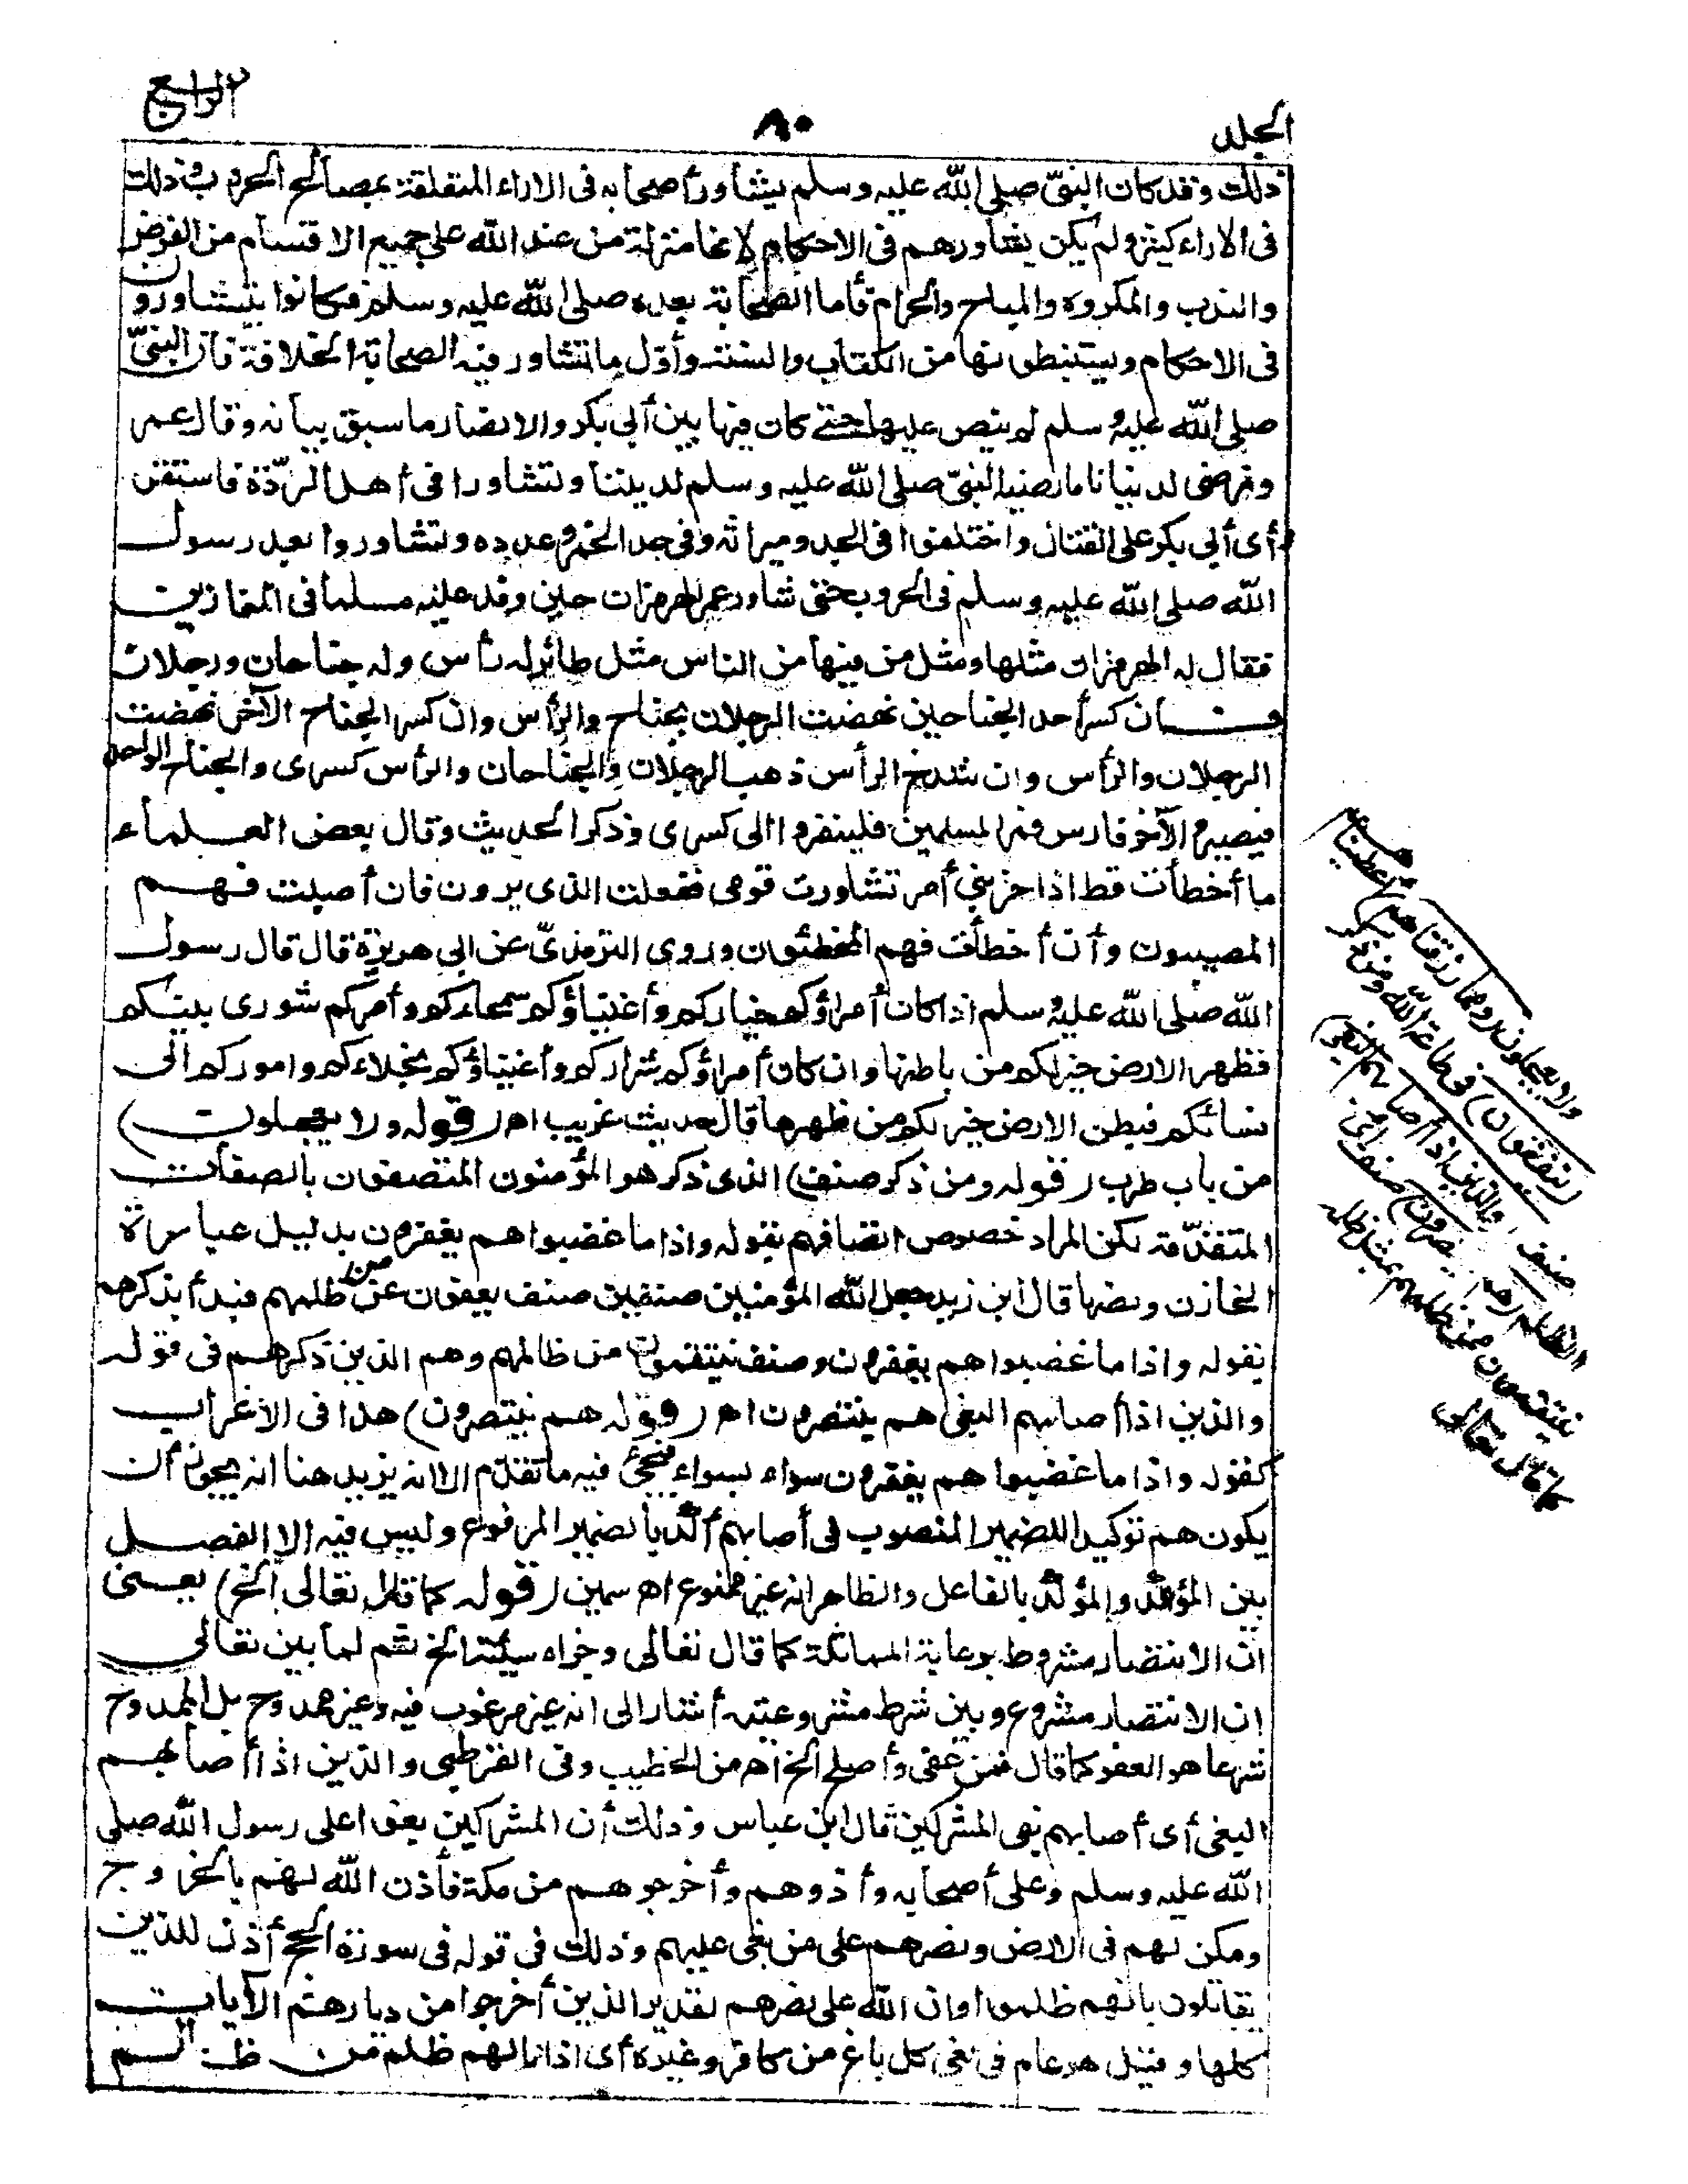 الجلد ٨٠ الرابع
ذلك وقد كان النبيّ صلى الله عليه وسلم يشاور أصحابه في الاراء المتعلقة بمصالح الحروب وذلك
في الاراء كثير ولم يكن يشاورهم في الاحكام لانها منزلة من عند الله على جميع الاقسام من الفرض
والندب والمكروه والمباح والحرام فأما الصحابة بعده صلى الله عليه وسلم فكانوا يتشاورون
في الاحكام ويستنبطونها من الكتاب والسنة وأوّل ما تشاور فيه الصحابة الخلافة فان النبيّ
صلى الله عليه وسلم لم ينص عليها حتى كان فيها بين أبي بكر والانصار ما سبق بيانه وقال عمر
ونرضى لدنيانا ما رضيه النبيّ صلى الله عليه وسلم لديننا وتشاورا في أهل الرّدّة فاستقر
رأى أبي بكر على القتال واختلفوا في الجد وميراثه وفي حد الخمر وعدده وتشاوروا بعد رسول
الله صلى الله عليه وسلم في الحروب حتى شاور عمر الهرمزان حين وفد عليه مسلما في المغازي
فقال له الهرمزان مثلها ومثل من فيها من الناس مثل طائر له رأس وله جناحان ورجلان
فان كسر أحد الجناحين نهضت الرجلان بجناح والرأس وان كسر الجناح الآخر نهضت
الرجلان والرأس وان شدخ الرأس ذهب الرجلان والجناحان والرأس كسرى والجناح الواحد
قيصر والآخر فارس فمر المسلمين فلينفروا الى كسرى وذكر الحديث وقال بعض العلماء
ما أخطأت قط اذا حزبني أمر تشاورت قومي ففعلت الذي يرون فان أصبت فهم
المصيبون وأن أخطأت فهم المخطئون وروى الترمذيّ عن ابي هريرة قال قال رسول
الله صلى الله عليه وسلم اذا كان أمراؤكم خياركم وأغنياؤكم سمحاءكم وأمركم شورى بينكم
فظهر الارض خير لكم من باطنها وان كان أمراؤكم شراركم وأغنياؤكم بخلاءكم واموركم الى
نسائكم فبطن الارض خير لكم من ظهرها قال حديث غريب اهـ (قوله ولا يعجلون)
من باب طرب (قوله ومن ذكر صنف) الذي ذكر هو المؤمنون المتصفون بالصفات
المتقدّمة لكن المراد خصوص اتصافهم بقوله واذا ما غضبوا هم يغفرون بدليل عبارة
الخازن ونصها قال ابن زيد جعل الله المؤمنين صنفين صنف يعفون عن من ظلمهم فبدأ بذكرهم
بقوله واذا ما غضبوا هم يغفرون وصنف ينتقمون من ظالمهم وهم الذين ذكرهم في قوله
والذين اذا أصابهم البغى هم ينتصرون اهـ (قوله هم ينتصرون) هذا في الاعراب
كقوله واذا ما غضبوا هم يغفرون سواء بسواء فيجئ فيه ما تقدّم الا انه يزيد هنا انه يجوز أن
يكون هم توكيدا للضمير المنصوب في أصابهم أكّد بالضمير المرفوع وليس فيه الا الفصل
بين المؤكد والمؤكّد بالفاعل والظاهر انه غير ممنوع اهـ سمين (قوله كما قال تعالى الخ) يعنى
ان الانتصار مشروط برعاية المماثلة كما قال تعالى وجزاء سيئة الخ ثم لما بين تعالى
ان الانتصار مشروع وبين شرط مشروعيته أشار الى انه غير مرغوب فيه وغير ممدوح بل الممدوح
شرعا هو العفو كما قال فمن عفى وأصلح الخ اهـ من الخطيب وفي القرطبي والذين اذا أصابهم
البغى أى أصابهم بغى المشركين قال ابن عباس وذلك أن المشركين بغوا على رسول الله صلى
الله عليه وسلم وعلى أصحابه وأذوهم وأخرجوهم من مكة فأذن الله لهم بالخروج
ومكن لهم في الارض ونصرهم على من بغى عليهم وذلك في قوله في سورة الحج أذن للذين
يقاتلون بانهم ظلموا وان الله على نصرهم لقدير الذين أخرجوا من ديارهم الآيات
كلها وقيل هو عام في بغى كل باغ من كافر وغيره أى اذا نالهم ظلم من ظالم
ولا يعجلون (ومما رزقناهم) أعطيناهم
(ينفقون) في طاعة الله ومن ذكر
صنف (والذين اذا أصابهم البغى)
الظلم (هم ينتصرون) صنف أى
ينتقمون ممن ظلمهم بمثل ظلمه
كما قال تعالى